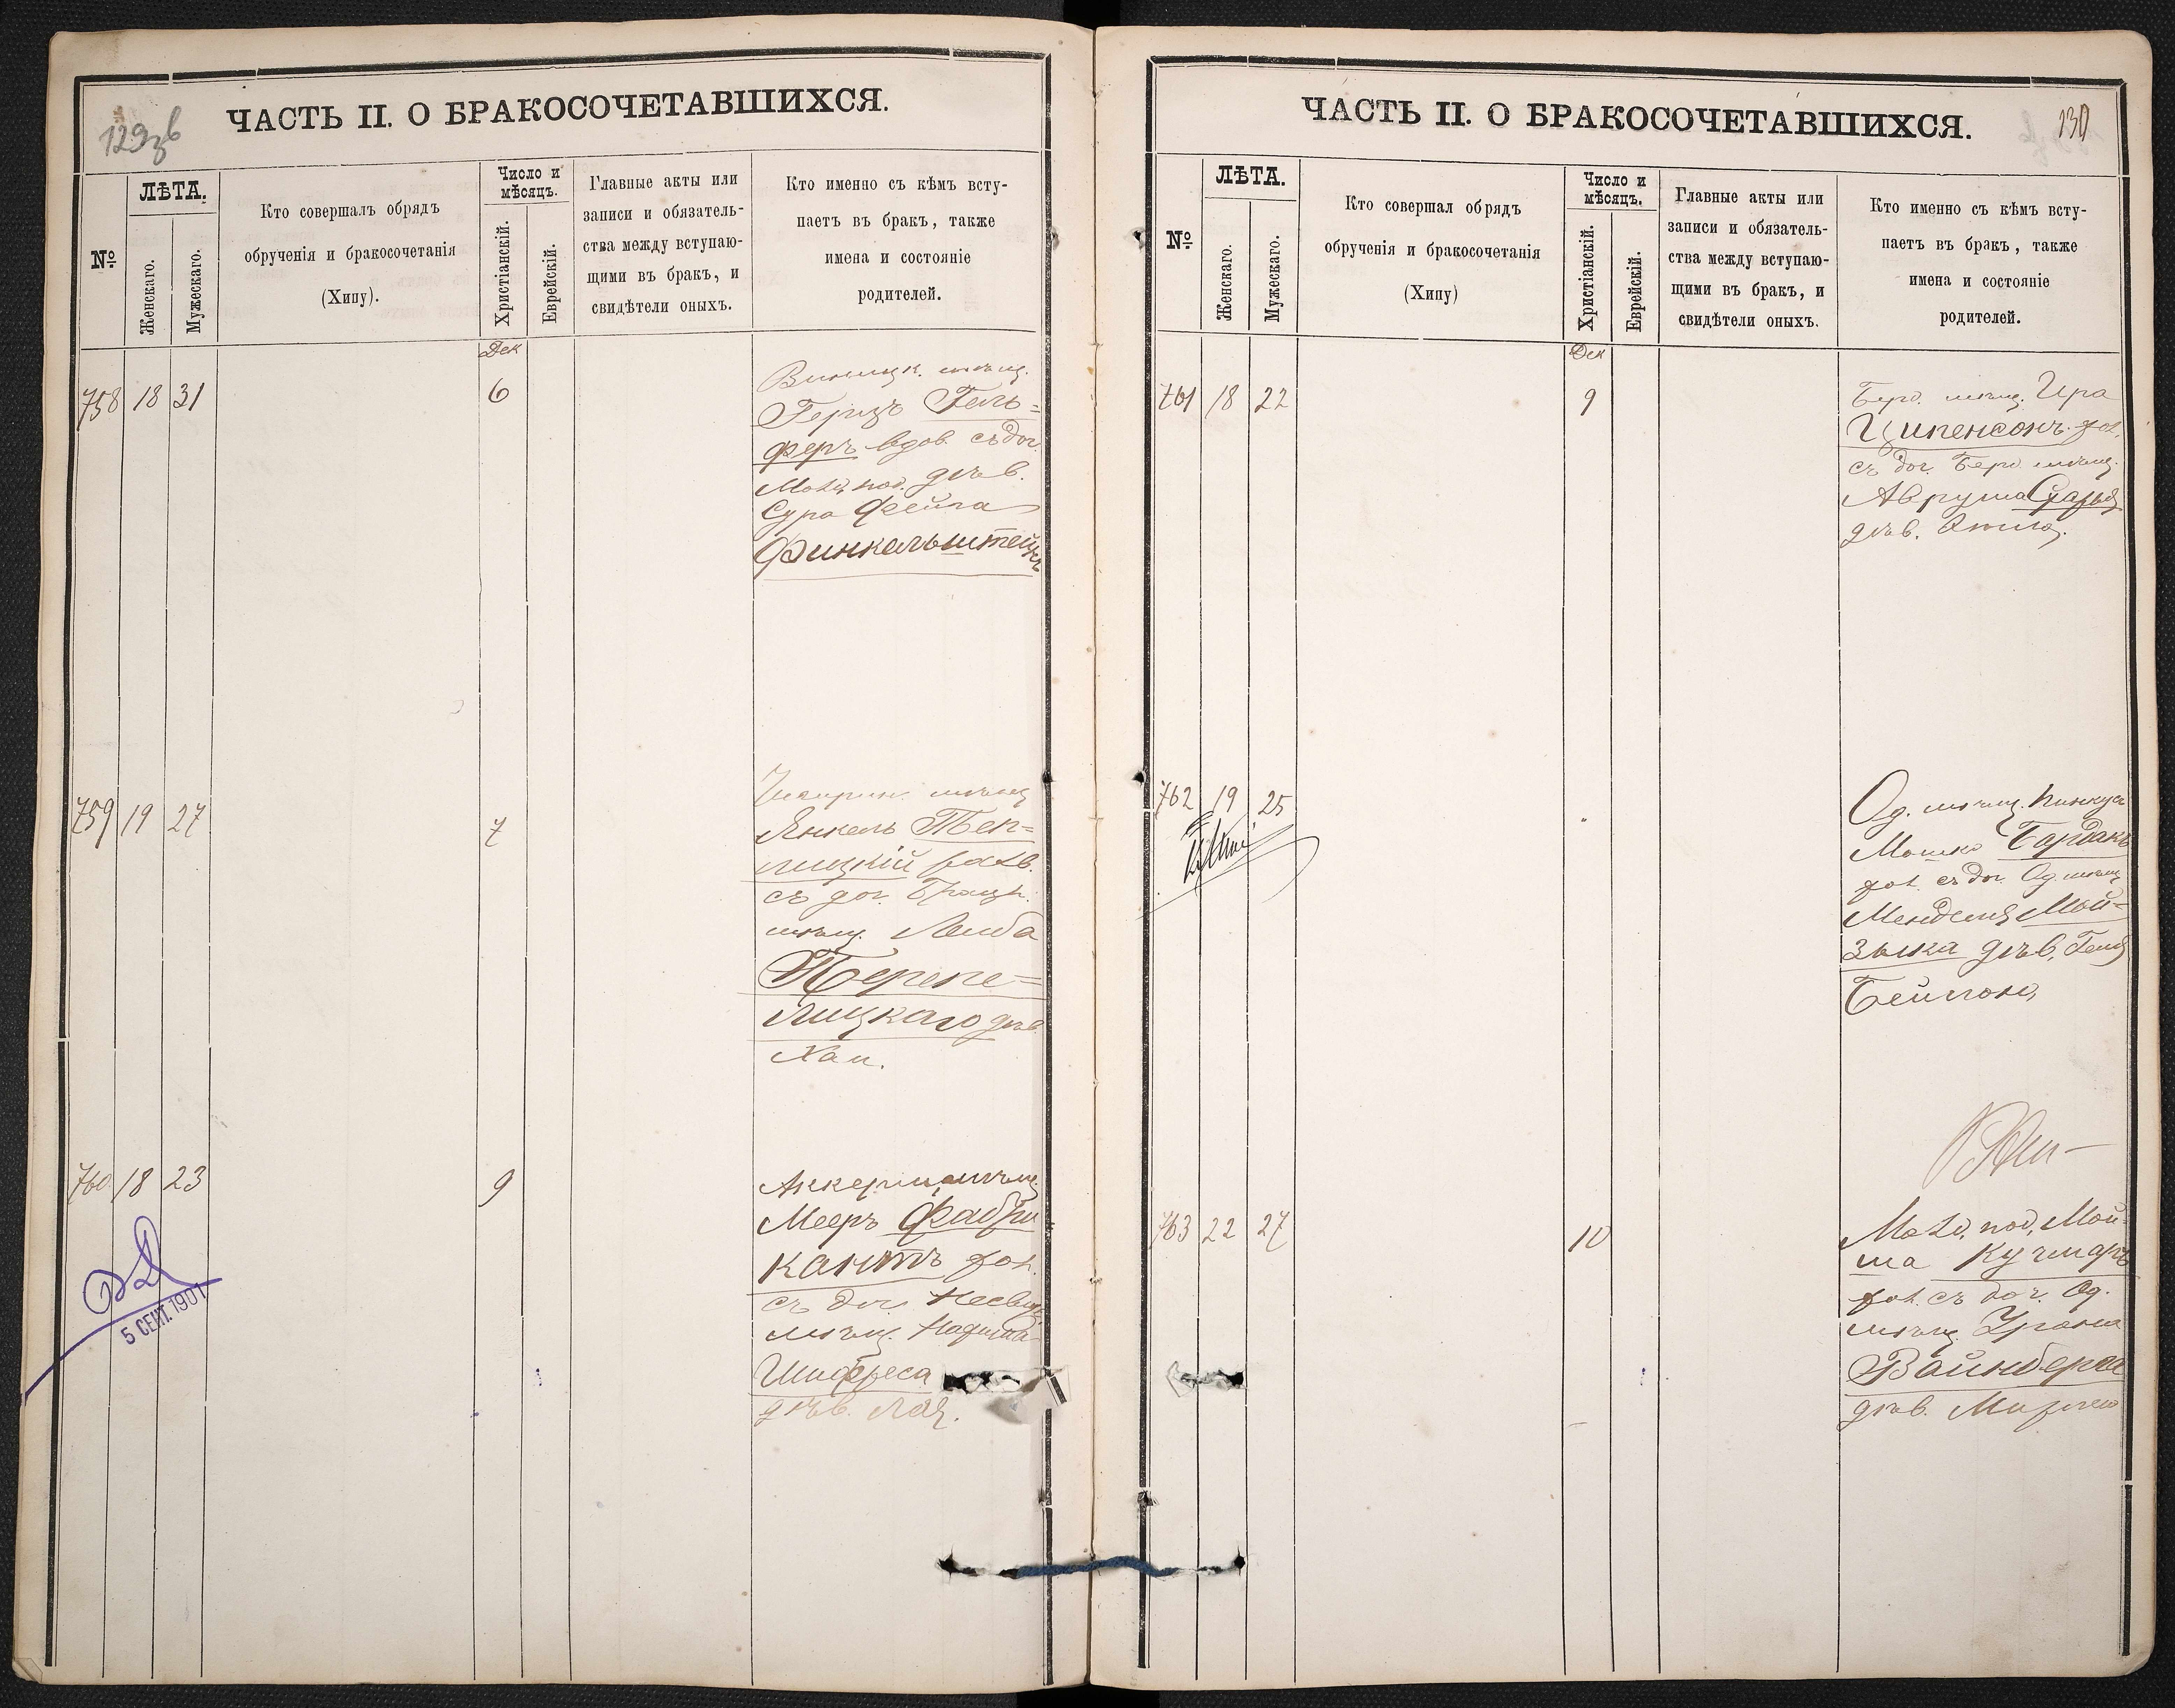 129зв
ЧАСТЬ II. О БРАКОСОЧЕТАВШИХСЯ.
№
ЛѢТА.
Женскаго.
Мужескаго.
Кто совершалъ обрядъ
обрученія и бракосочетанія
(Хипу).
Число и
мѣсяцъ.
Христіанскій.
Еврейскій.
Главные акты или
записи и обязатель-
ства между вступаю-
щими въ бракъ, и
свидѣтели оныхъ.
Кто именно съ кѣмъ всту-
паетъ въ бракъ, также
имена и состояніе
родителей.
Дек
758 18 31 6
Винницк. мѣщ.
Герцъ Гель=
феръ вдов. съ доч.
Могил. под. дѣв.
Сура Фейга
Финкельштейнъ
759 19 27 7
мѣщ
Янкель Теп=
лицкій разв.
съ доч. Брацл.
мѣщ. Лейба
Перепе=
лицкаго дѣв.
Хая.
760 18 23 9
Аккерм. мѣщ
Мееръ Фабри=
кантъ хол.
съ доч.
мѣщ.
Шифреса
дѣв. Лея.
5 СЕНТ. 1901
ЧАСТЬ II. О БРАКОСОЧЕТАВШИХСЯ.
130
№
ЛѢТА.
Женскаго.
Мужескаго.
Кто совершал обрядъ
обрученія и бракосочетанія
(Хипу)
Число и
мѣсяцъ.
Христіанскій.
Еврейскій.
Главные акты или
записи и обязатель-
ства между вступаю-
щими въ бракъ, и
свидѣтели оныхъ.
Кто именно съ кѣмъ всту-
паетъ въ бракъ, также
имена и состояніе
родителей.
Дек
761 18 22 9
Берд. мѣщ.
Ципенсонъ хол.
съ доч. Берд. мѣщ.
Аврума
дѣв.
762 19 25
Од. мѣщ. Пинкусъ
Мошко Бардакъ
хол. съ доч. Од. мѣщ
Менделя Мой=
зыка дѣв.
Бейла
763 22 27 10
под. Мой
ша Кучмаръ
хол. съ доч. Од.
мѣщ.
Вайнберга
дѣв.